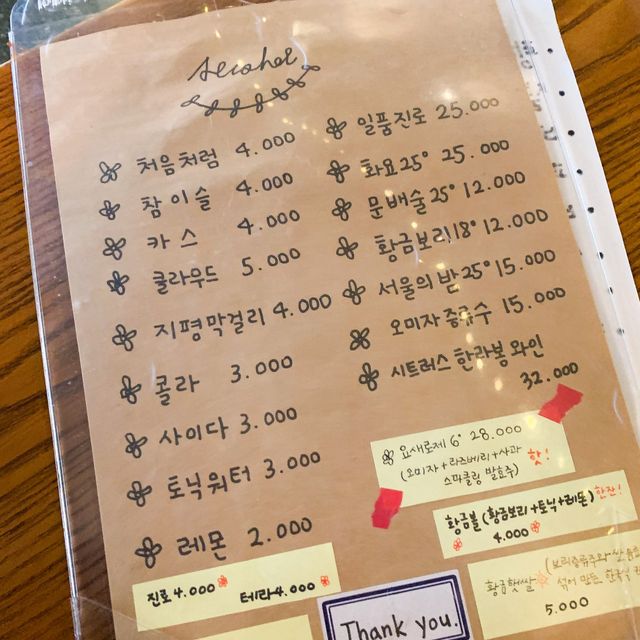 Alcohol
처음처럼 4.000
참이슬 4.000
카스 4.000
클라우드 5.000
지평막걸리 4.000
콜라 3.000
사이다 3.000
토닉워터 3.000
레몬 2.000
진로 4.000 테라 4.000
일품진로 25.000
화요25° 25.000
문배술25° 12.000
황금보리18° 12.000
서울의밤25° 15.000
오미자 증류수 15.000
시트러스 한라봉 와인
32.000
요새로제 6° 28.000
(오미자+라즈베리+사과
스파클링 발효주) 핫!
황금볼 (황금보리+토닉+레몬) 한잔!
4.000
황금햇쌀
(보리증류주와
섞어 만든
5.000
Thank you.